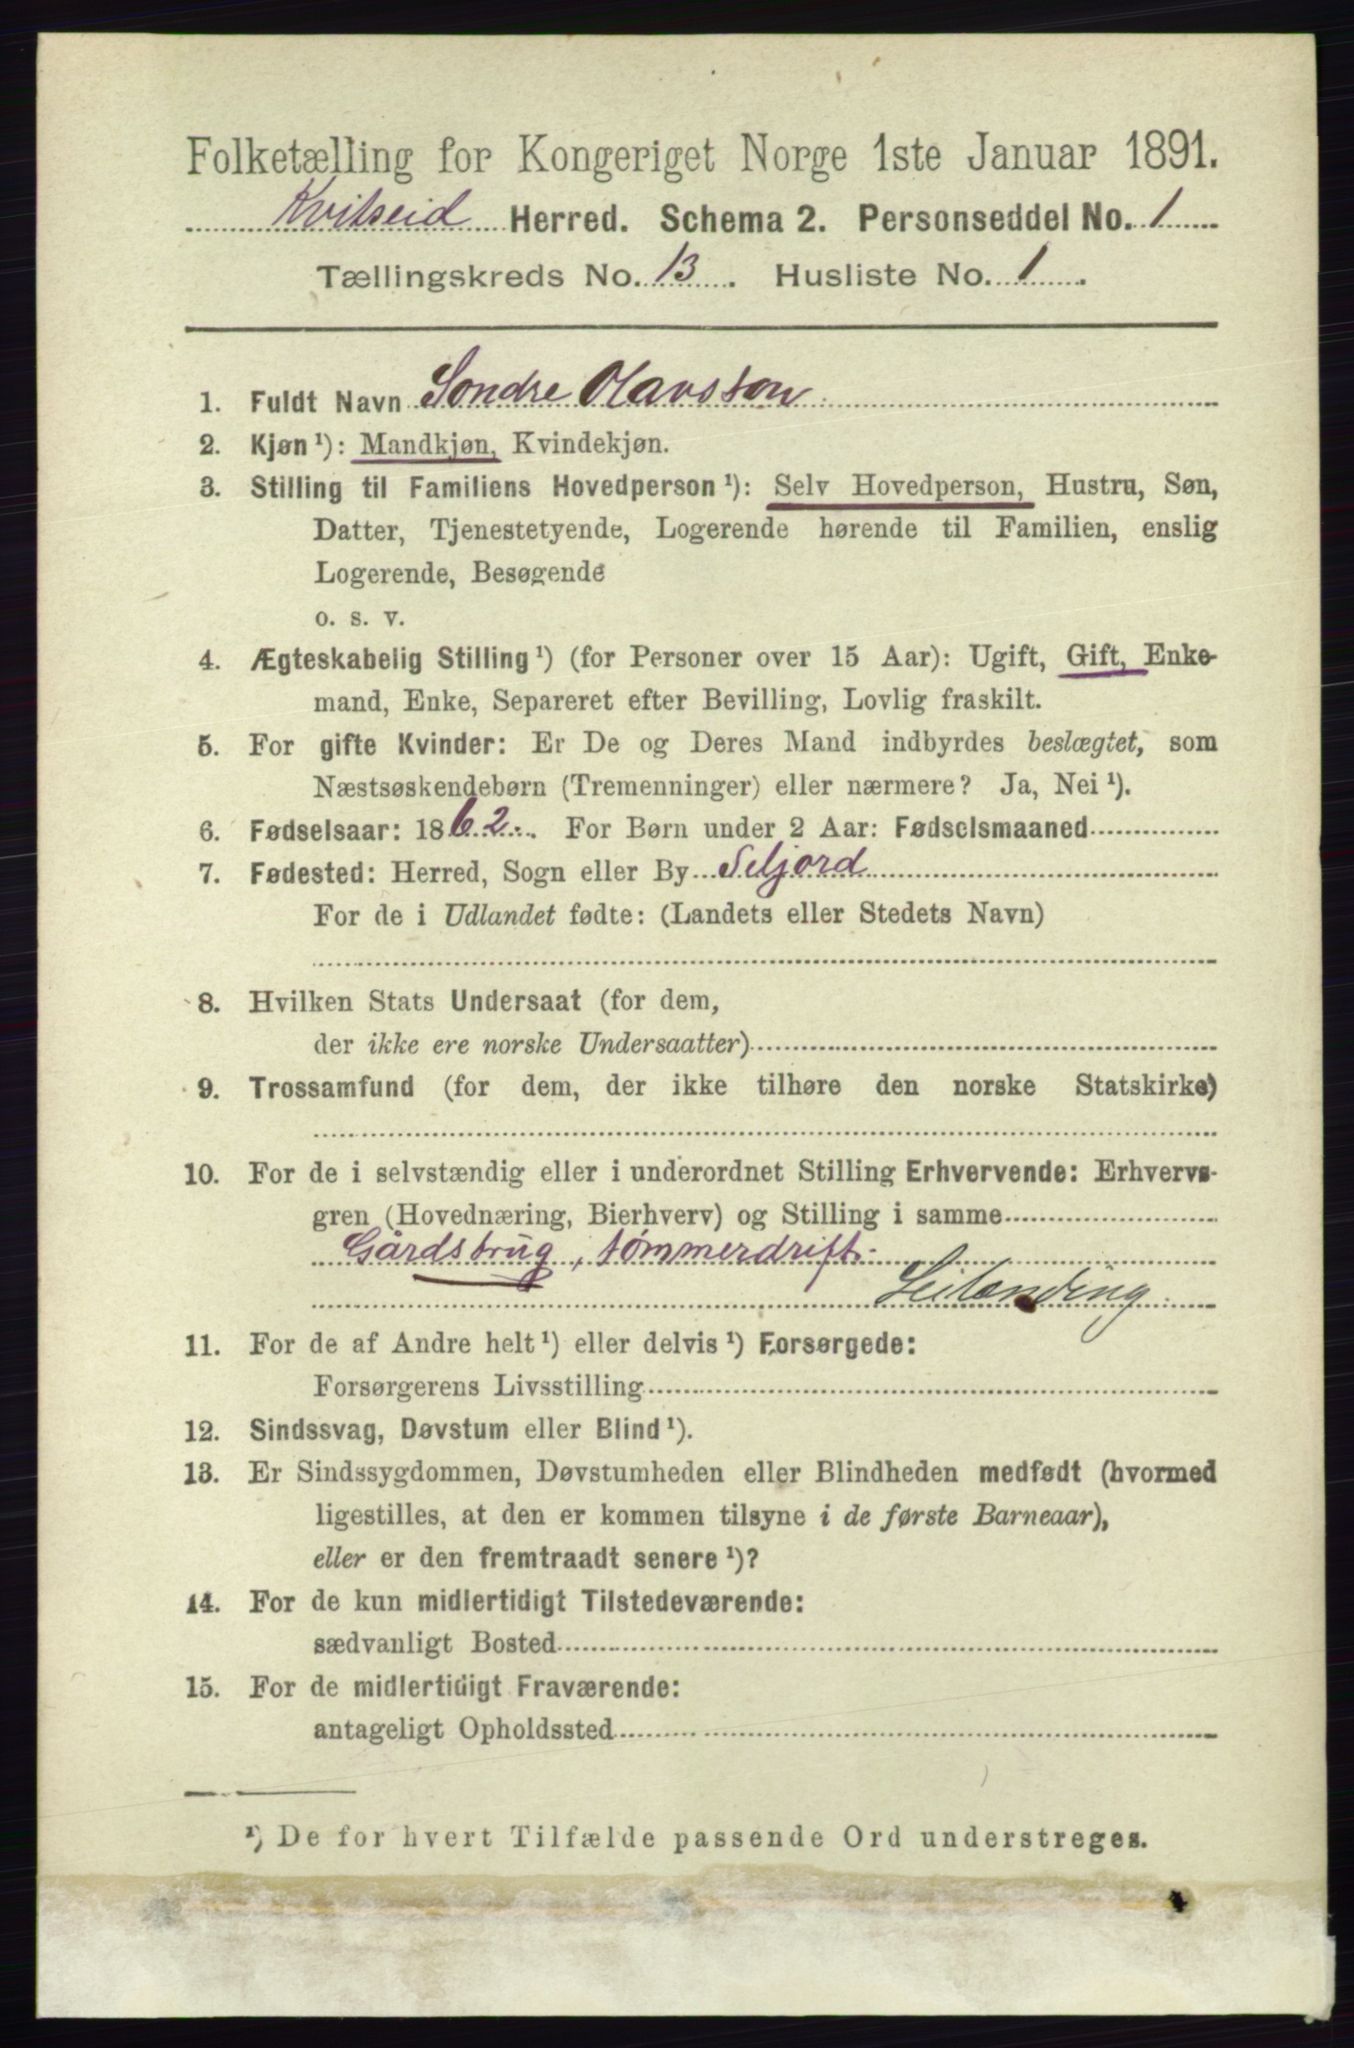 Folketælling for Kongeriget Norge 1ste Januar 1891.
Kvitseid Herred. Schema 2. Personseddel No. 1
Tællingskreds No. 13. Husliste No. 1.
1. Fuldt Navn Sondre Olavson
2. Kjøn ¹): Mandkjøn, Kvindekjøn.
3. Stilling til Familiens Hovedperson ¹): Selv Hovedperson, Hustru, Søn,
Datter, Tjenestetyende, Logerende hørende til Familien, enslig
Logerende, Besøgende
o. s. v.
4. Ægteskabelig Stilling ¹) (for Personer over 15 Aar): Ugift, Gift, Enke-
mand, Enke, Separeret efter Bevilling, Lovlig fraskilt.
5. For gifte Kvinder: Er De og Deres Mand indbyrdes beslægtet, som
Næstsøskendebørn (Tremenninger) eller nærmere? Ja, Nei ¹).
6. Fødselsaar: 1862. For Børn under 2 Aar: Fødselsmaaned
7. Fødested: Herred, Sogn eller By Seljord
For de i Udlandet fødte: (Landets eller Stedets Navn)
8. Hvilken Stats Undersaat (for dem,
der ikke ere norske Undersaatter)
9. Trossamfund (for dem, der ikke tilhøre den norske Statskirke)
10. For de i selvstændig eller i underordnet Stilling Erhvervende: Erhvervs-
gren (Hovednæring, Bierhverv) og Stilling i samme
Gårdsbrug, tømmerdrift.
Leilænding
11. For de af Andre helt ¹) eller delvis ¹) Forsørgede:
Forsørgerens Livsstilling
12. Sindssvag, Døvstum eller Blind ¹).
13. Er Sindssygdommen, Døvstumheden eller Blindheden medfødt (hvormed
ligestilles, at den er kommen tilsyne i de første Barneaar),
eller er den fremtraadt senere ¹)?
14. For de kun midlertidigt Tilstedeværende:
sædvanligt Bosted
15. For de midlertidigt Fraværende:
antageligt Opholdssted
¹) De for hvert Tilfælde passende Ord understreges.